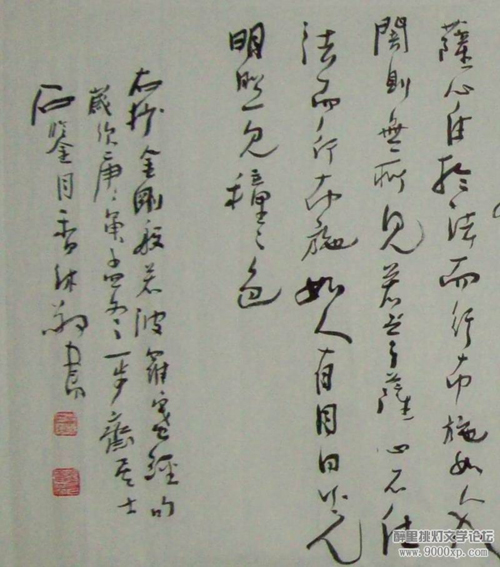 薩心住於法而行布施如人入
闇則無所見若菩薩心不住
法而行布施如人有目日光
明照見種々色
右抄金剛般若波羅蜜經句
歲次庚寅孟冬一步齋居士
石鑒月香林書
醉里挑灯文学论坛
www.9000xp.com